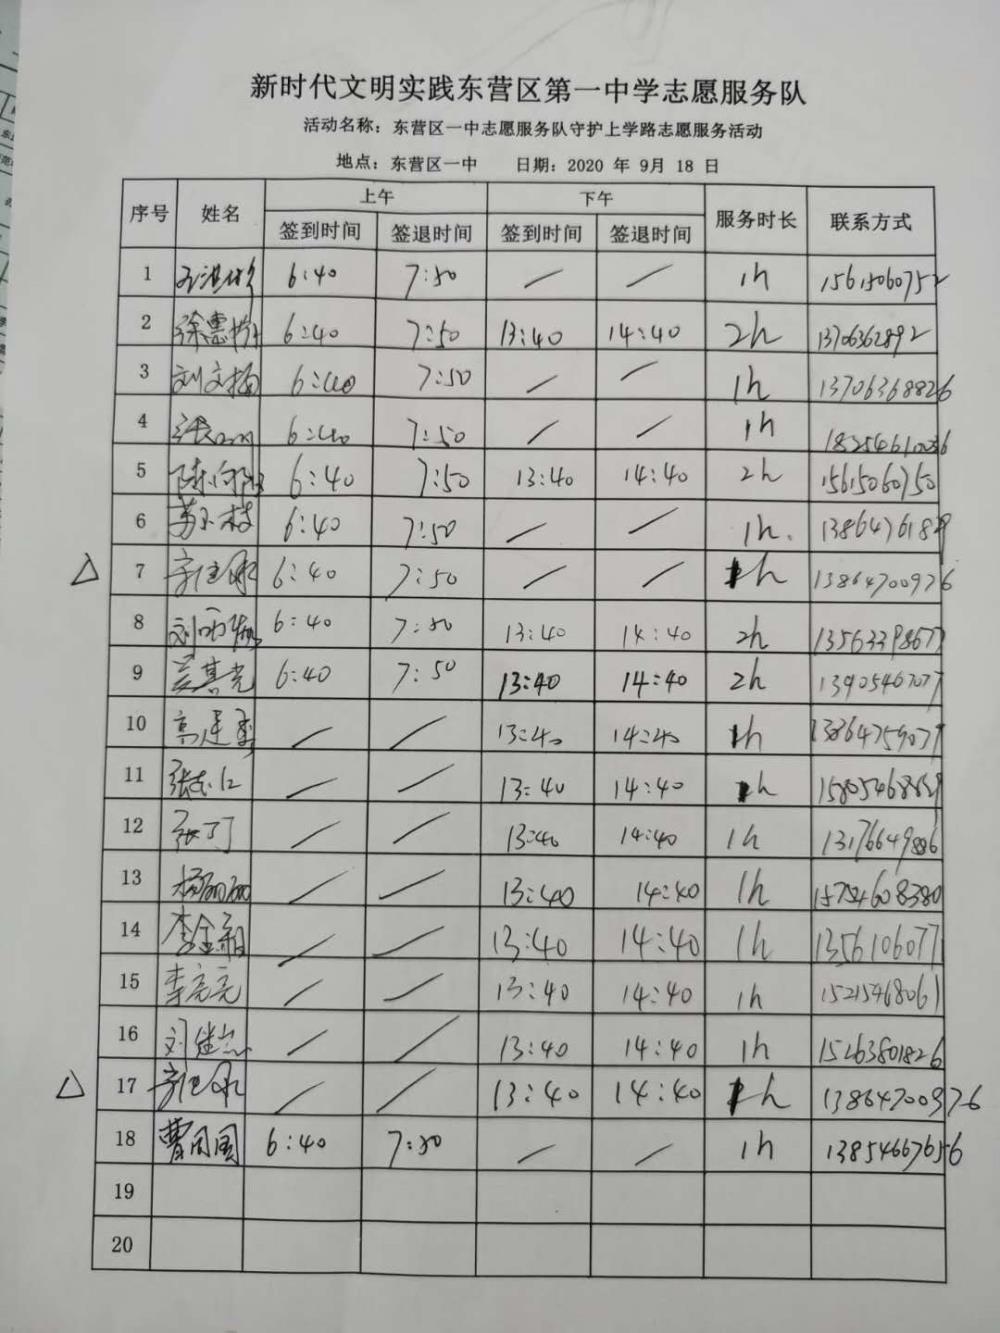 新时代文明实践东营区第一中学志愿服务队
活动名称：东营区一中志愿服务队守护上学路志愿服务活动
地点：东营区一中 日期：2020 年 9月 18 日
序号 姓名 上午 下午 服务时长 联系方式
签到时间 签退时间 签到时间 签退时间
1 6:40 7:50 — — 1h
2 徐惠 6:40 7:50 13:40 14:40 2h 13706362892
3 刘文梅 6:40 7:50 — — 1h 13706368826
4 6:40 7:50 — — 1h
5 6:40 7:50 13:40 14:40 2h 15615060750
6 苏玉枝 6:40 7:50 — — 1h.
△ 7 6:40 7:50 — — 1h 13864700976
8 6:40 7:50 13:40 14:40 2h 13563398677
9 6:40 7:50 13:40 14:40 2h 13905467077
10 — — 13:40 14:40 1h 13864759077
11 张志仁 — — 13:40 14:40 1h
12 张丁丁 — — 13:40 14:40 1h 13176649886
13 杨丽丽 — — 13:40 14:40 1h
14 — — 13:40 14:40 1h
15 李亮亮 — — 13:40 14:40 1h 15215468061
16 — — 13:40 14:40 1h 15263801826
△ 17 — — 13:40 14:40 1h 13864700976
18 曹同国 6:40 7:50 — — 1h 13854667656
19
20